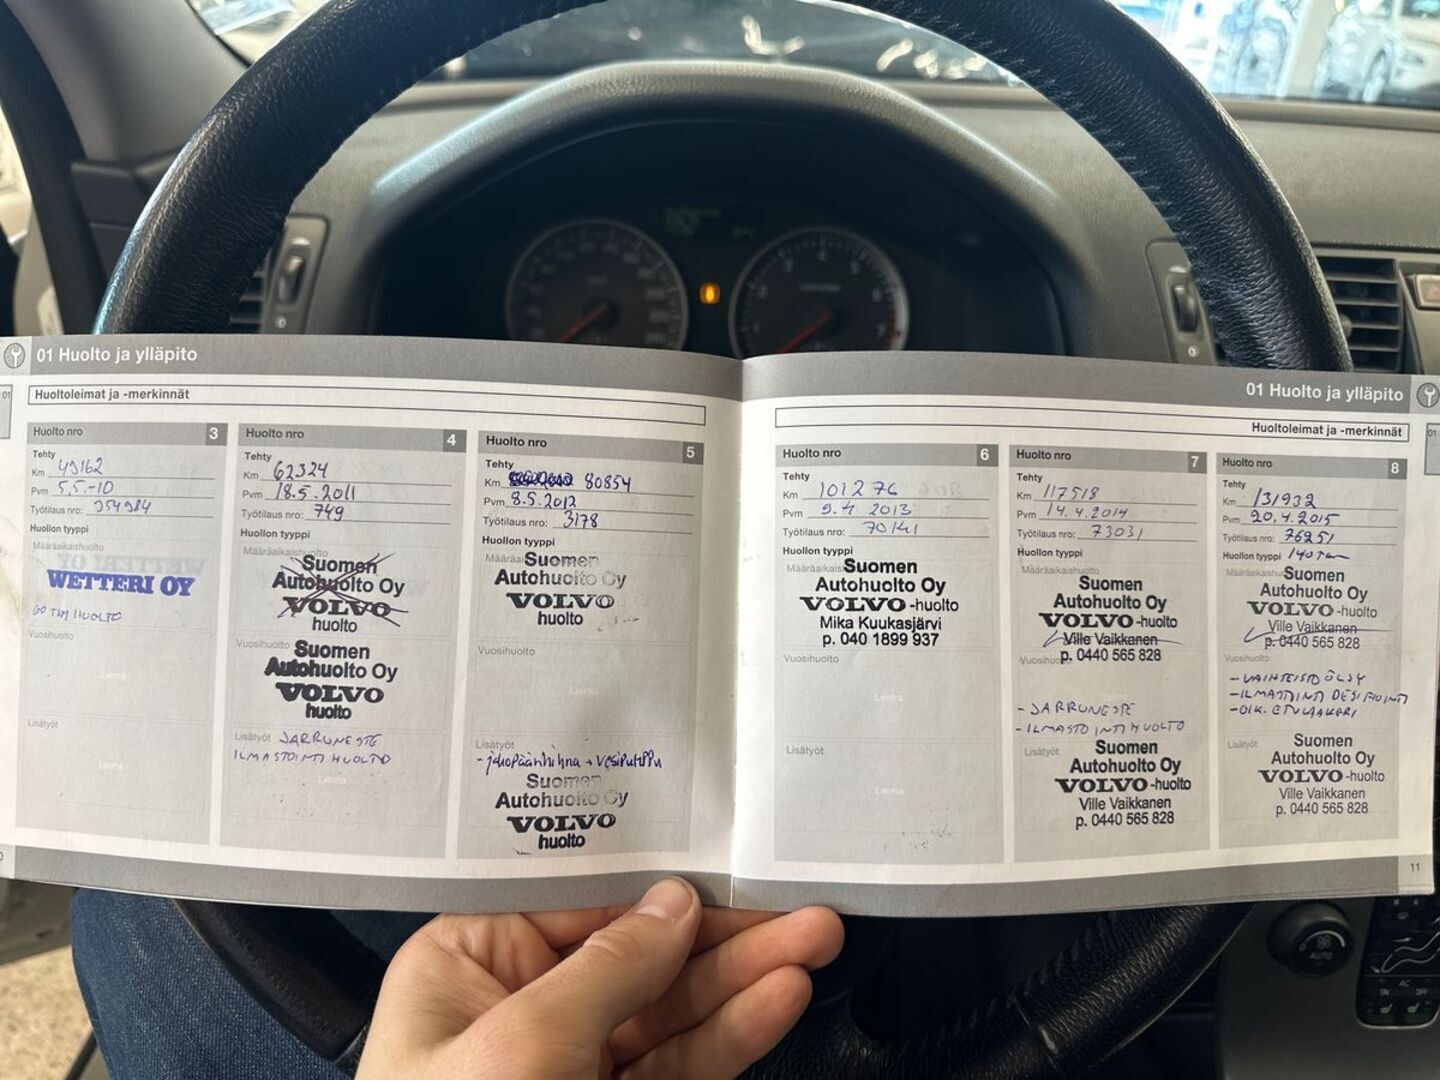 01 Huolto ja ylläpito
Huoltoleimat ja -merkinnät
Huolto nro 3
Tehty
Km 49162
Pvm 5.5.-10
Työtilaus nro: 354984
Huollon tyyppi
Määräaikaishuolto
WETTERI OY
60 TKM HUOLTO
Vuosihuolto
Leima
Lisätyöt
Leima
Huolto nro 4
Tehty
Km 62324
Pvm 18.5.2011
Työtilaus nro: 749
Huollon tyyppi
Määräaikaishuolto
Suomen
Autohuolto Oy
VOLVO
huolto
Vuosihuolto
Suomen
Autohuolto Oy
VOLVO
huolto
Lisätyöt JARRUNESTE
ILMASTOINTI HUOLTO
Leima
Huolto nro 5
Tehty
Km 80854
Pvm 8.5.2012
Työtilaus nro: 3178
Huollon tyyppi
Määräai
Suomen
Autohuolto Oy
VOLVO
huolto
Vuosihuolto
Leima
Lisätyöt
- jakopäänhihna + vesipumppu
Suomen
Autohuolto Oy
VOLVO
huolto
01 Huolto ja ylläpito
Huoltoleimat ja -merkinnät
Huolto nro 6
Tehty
Km 101276
Pvm 9.4 2013
Työtilaus nro: 70141
Huollon tyyppi
Määräaikais
Suomen
Autohuolto Oy
VOLVO -huolto
Mika Kuukasjärvi
p. 040 1899 937
Vuosihuolto
Leima
Lisätyöt
Leima
Huolto nro 7
Tehty
Km 117518
Pvm 14.4.2014
Työtilaus nro: 73031
Huollon tyyppi
Määräaikaishuolto
Suomen
Autohuolto Oy
VOLVO -huolto
Ville Vaikkanen
p. 0440 565 828
Vuosihuo
- JARRUNESTE
- ILMASTOINTI HUOLTO
Lisätyöt
Suomen
Autohuolto Oy
VOLVO -huolto
Ville Vaikkanen
p. 0440 565 828
Huolto nro 8
Tehty
Km 131932
Pvm 20.4.2015
Työtilaus nro: 76251
Huollon tyyppi 140 TKM
Määräaikaishu
Suomen
Autohuolto Oy
VOLVO -huolto
Ville Vaikkanen
p. 0440 565 828
Vuosihuolto
- VAIHTEISTOÖLJY
- ILMASTOINTI DESIFIOINTI
- OIK. ETULAAKERI
Lisätyöt
Suomen
Autohuolto Oy
VOLVO -huolto
Ville Vaikkanen
p. 0440 565 828
11